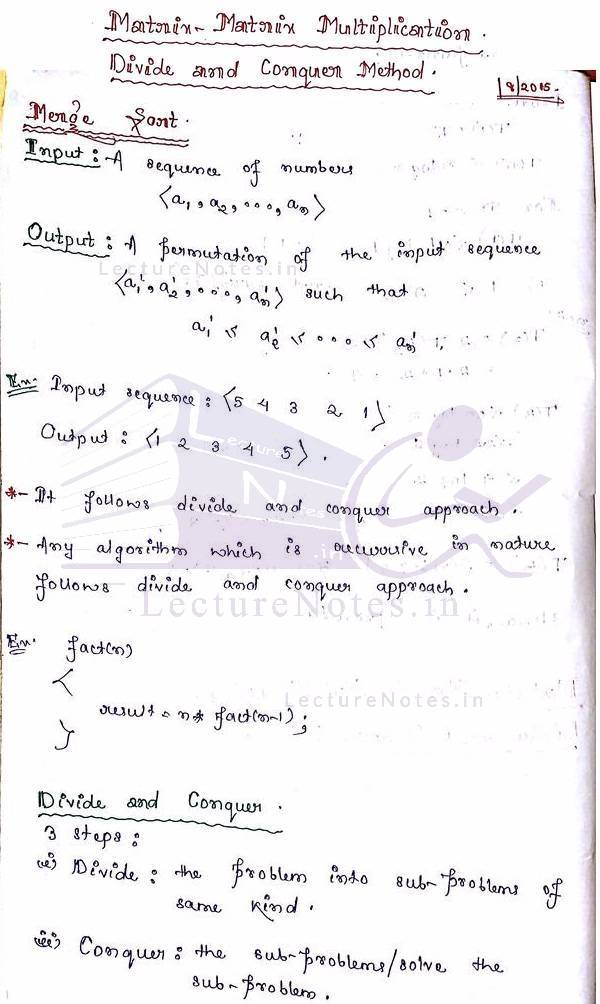 Matrix - Matrix Multiplication.
Divide and Conquer Method.
18/2015.
Merge Sort.
Input: A sequence of numbers
⟨a₁, a₂, ..., aₙ⟩
Output: A permutation of the input sequence
LectureNotes.in
⟨a₁', a₂', ..., aₙ'⟩ such that
a₁' ≤ a₂' ≤ ... ≤ aₙ'
Ex: Input sequence: ⟨5 4 3 2 1⟩
Output: ⟨1 2 3 4 5⟩.
*- It follows divide and conquer approach.
*- Any algorithm which is recursive in nature
follows divide and conquer approach.
LectureNotes.in
Ex. fact(n)
{
LectureNotes.in
result = n * fact(n-1);
}
Divide and Conquer.
3 steps:
Divide: the problem into sub-problems of
same kind.
Conquer: the sub-problems/solve the
sub-problem.